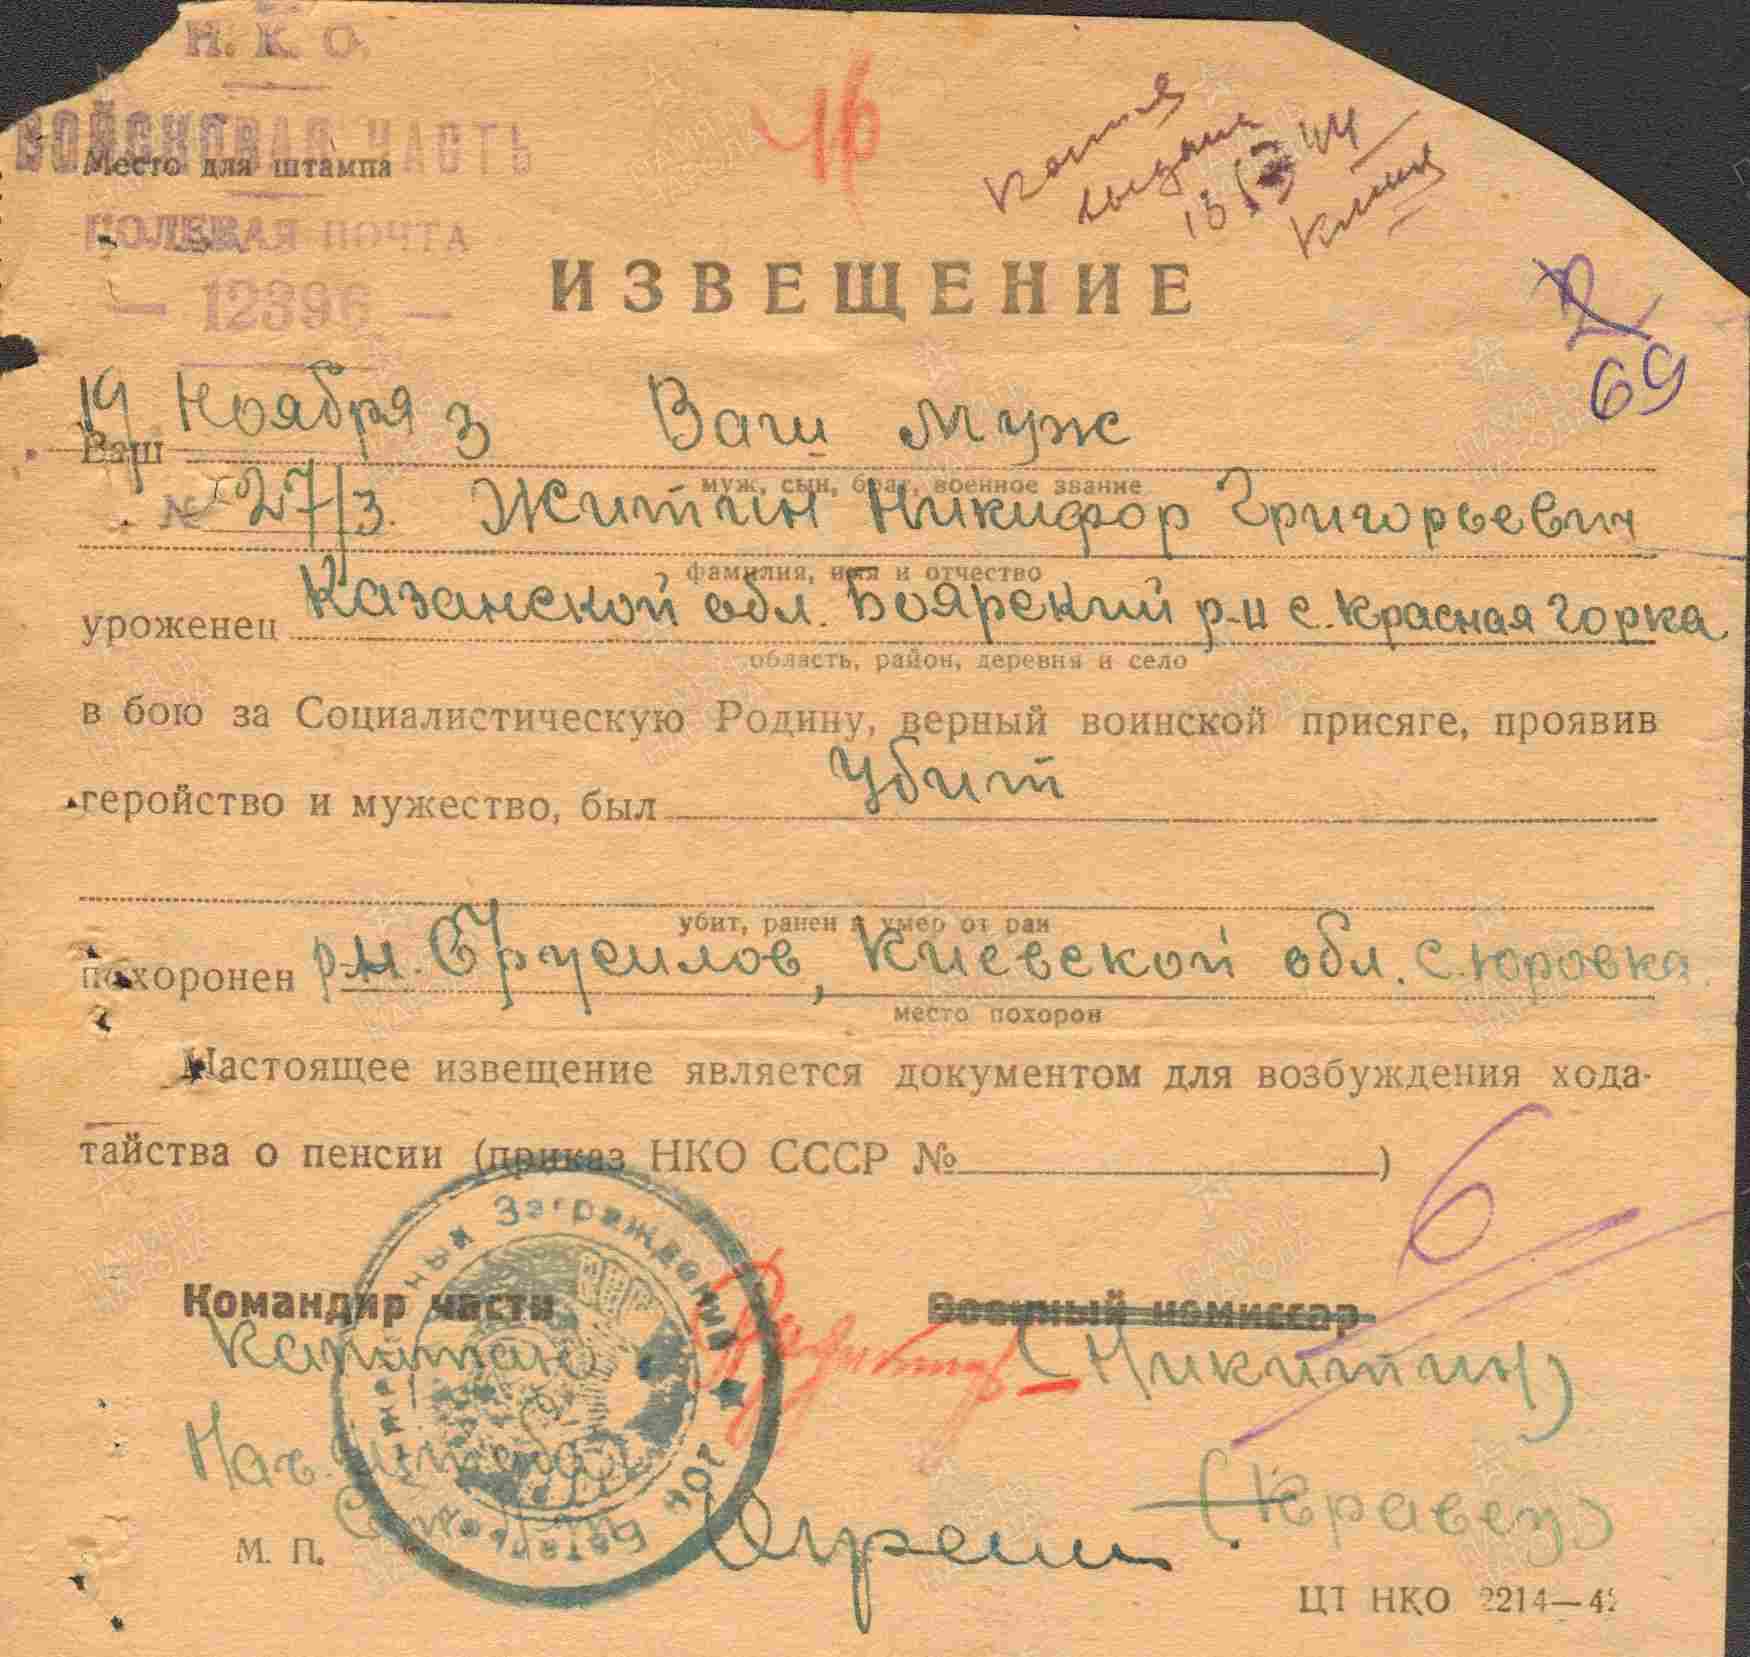 Н. К. О.
ВОЙСКОВАЯ ЧАСТЬ
Место для штампа
ПОЛЕВАЯ ПОЧТА
— 12396 —
46
Копия
выдана
13/3 44
ИЗВЕЩЕНИЕ
69
19 Ноября 3 Ваш муж
Ваш
муж, сын, брат, военное звание
№ 27/3. Житкин Никифор Григорьевич
фамилия, имя и отчество
уроженец Казанской обл. Боярский р-н с. Красная Горка
область, район, деревня и село
в бою за Социалистическую Родину, верный воинской присяге, проявив
геройство и мужество, был убит
убит, ранен и умер от ран
похоронен р-н. Брусилов, Киевской обл. с. Юровка.
место похорон
Настоящее извещение является документом для возбуждения хода-
тайства о пенсии (приказ НКО СССР № )
6
Командир части Военный комиссар
Капитан (Никитин)
Нач. штаба
(Кравец)
М. П.
Батальон Заграждения
ЦТ НКО 2214—42
ПАМЯТЬ НАРОДА